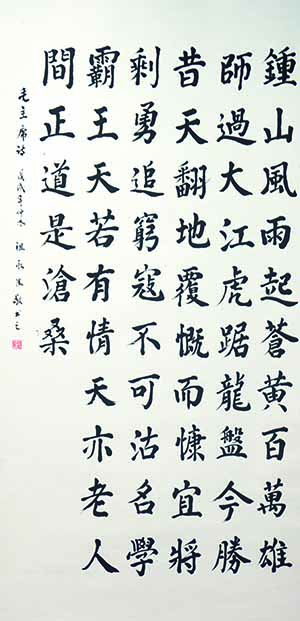 鍾山風雨起蒼黃百萬雄
師過大江虎踞龍盤今勝
昔天翻地覆慨而慷宜將
剩勇追窮寇不可沽名學
霸王天若有情天亦老人
間正道是滄桑
毛主席诗戊戌年